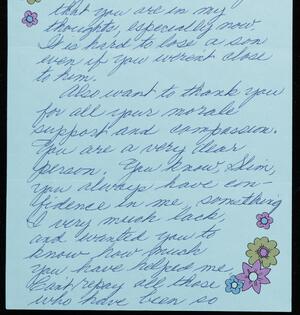 that you are in my
thoughts, especially now.
It is hard to lose a son
even if you weren't close
to him.
Also want to thank you
for all your morale
support and compassion.
You are a very dear
person. You know, Slim,
you always have con-
fidence in me, something
I very much lack
and wanted you to
know how much
you have helped me.
Can't repay all those
who have been so